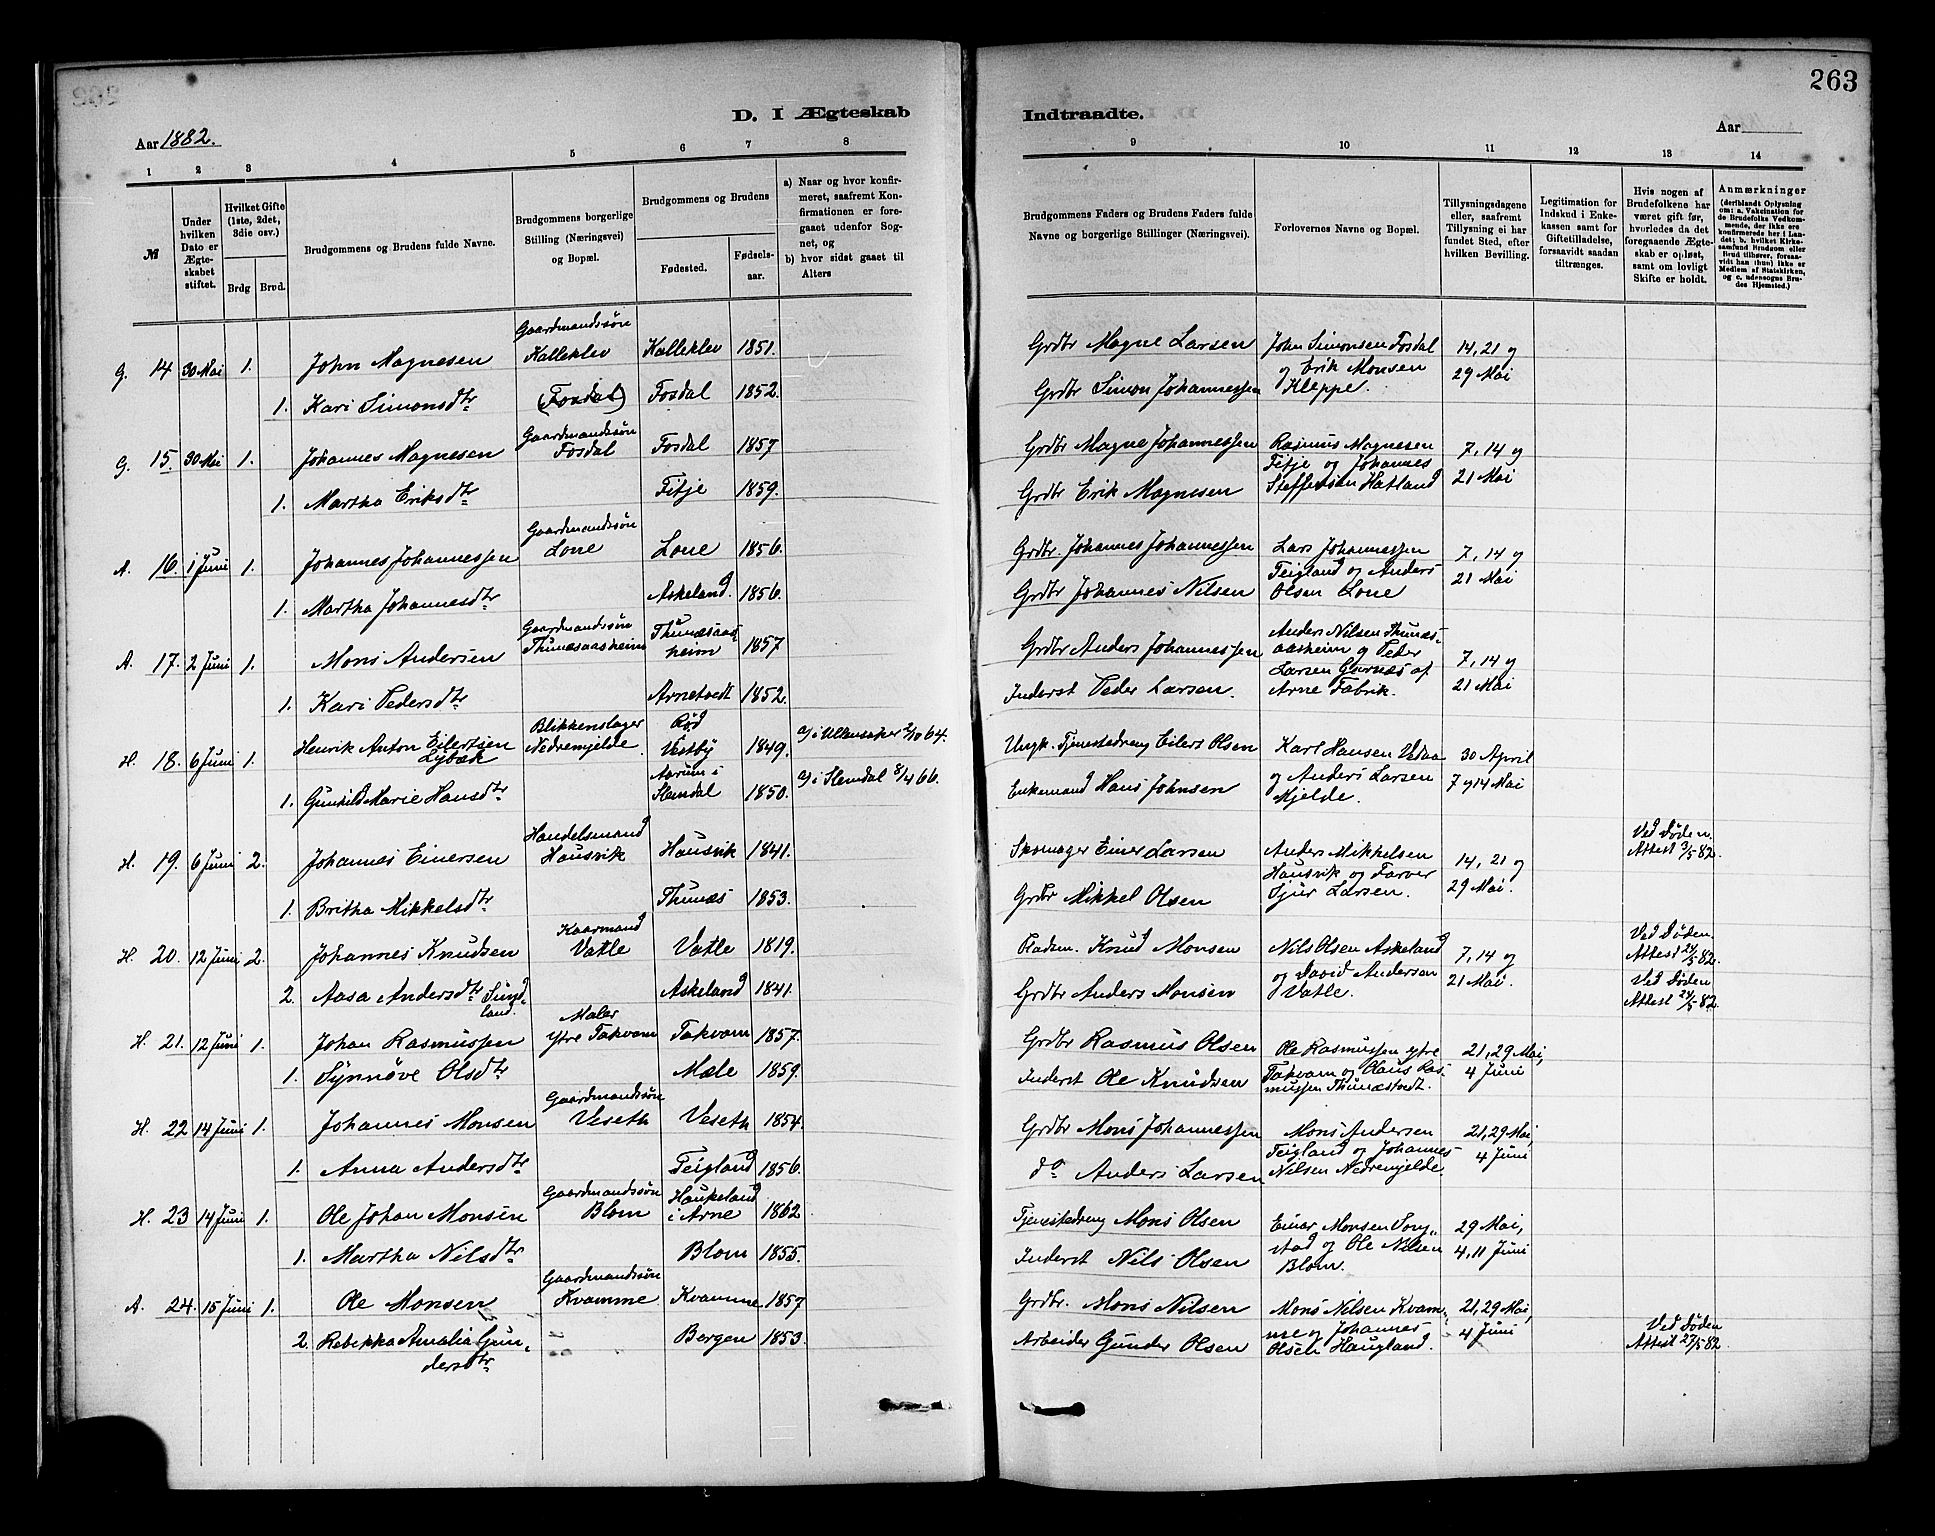 263
D. I Ægteskab
Indtraadte.
Aar 1882.
Aar
1 2 3 4 5 6 7 8
9 10 11 12 13 14
№
Under hvilken Dato er Ægteskabet stiftet.
Hvilket Gifte (1ste, 2det, 3die osv.)
Brdg Brud.
Brudgommens og Brudens fulde Navne.
Brudgommens borgerlige Stilling (Næringsvei) og Bopæl.
Brudgommens og Brudens
Fødested.
Fødselsaar.
a) Naar og hvor konfirmeret, saafremt Konfirmationen er foregaaet udenfor Sognet, og
b) hvor sidst gaaet til Alters
Brudgommens Faders og Brudens Faders fulde Navne og borgerlige Stillinger (Næringsvei).
Forlovernes Navne og Bopæl.
Tillysningsdagene eller, saafremt Tillysning ei har fundet Sted, efter hvilken Bevilling.
Legitimation for Indskud i Enkekassen samt for Giftetilladelse, forsaavidt saadan tiltrænges.
Hvis nogen af Brudefolkene har været gift før, hvorledes da det foregaaende Ægteskab er opløst, samt om lovligt Skifte er holdt.
Anmærkninger
(deriblandt Oplysning om: a. Vakcination for de Brudefolks Vedkommende, der ikke ere konfirmerede her i Landet; b. hvilket Kirkesamfund Brudgom eller Brud tilhører, forsaavidt han (hun) ikke er Medlem af Statskirken, og c. udensogns Brudes Hjemsted.)
G. 14 30 Mai 1. John Magnesen Gaardmandssøn Kalleklev Kalleklev 1851. Grdbr Magne Larsen John Simonsen Fosdal 14, 21 og
1. Kari Simonsdtr (Fosdal) Fosdal 1852. Grdbr Simon Johannessen og Erik Monsen Kleppe. 29 Mai
G. 15. 30 Mai 1. Johannes Magnesen Gaardmandssøn Fosdal Fosdal 1857 Grdbr Magne Johannessen Rasmus Magnesen 7, 14 og
1. Martha Eriksdtr Fitje 1859. Grdbr Erik Magnesen Fitje og Johannes Steffensen Hatland 21 Mai
A. 16. 1 Juni 1. Johannes Johannessen Gaardmandssøn Lone Lone 1856. Grdbr. Johannes Johannessen Lars Johannessen 7, 14 og
1. Martha Johannesdtr Askeland. 1856. Grdbr Johannes Nilsen Teigland og Anders Olsen Lone 21 Mai
A. 17. 2 Juni 1. Mons Andersen Gaardmandssøn Thunæsaasheim Thunæsaasheim 1857 Grdbr Anders Johannessen Anders Nilsen Thunæsaasheim og Peder 7, 14 og
1. Kari Pedersdtr Arnetvedt 1852. Inderst Peder Larsen. Larsen af Arne Fabrik. 21 Mai
H. 18. 6 Juni 1. Henrik Anton Eilertsen Lybæk Blikkenslager Nedremjelde. Rød Vestby 1849. a/ i Ullensaker 2/10 64. Ungk. Tjenestedreng Eilert Olsen Karl Hansen 30 April
1. Gunhild Marie Hansdtr Aarum i Slemdal 1850. a/ i Slemdal 8/4 66. Enkemand Hans Johnsen og Anders Larsen Mjelde. 7 og 14 Mai
H. 19. 6 Juni 2. Johannes Einersen Handelsmand Hausvik Hausvik 1841. Skomager Einer Larsen Anders Mikkelsen 14, 21 og Ved Døden. Attest 3/5 82.
1. Britha Mikkelsdtr Thunæs 1853. Grdbr Mikkel Olsen Hausvik og Farver Sjur Larsen. 29 Mai.
H. 20. 12 Juni 2. Johannes Knudsen Kaarmand Vatle Vatle 1819. Pladsm. Knud Monsen Nils Olsen Askeland 7, 14 og Ved Døden. Attest 24/5 82.
2. Aasa Andersdtr Sundland. Askeland 1841. Grdbr Anders Monsen og David Anderson Vatle. 21 Mai. Ved Døden Attest 24/5 82.
H. 21. 12 Juni 1. Johan Rasmussen Maler ytre Takvam Takvam 1857. Grdbr Rasmus Olsen Ole Rasmussen ytre 21, 29 Mai,
1. Synnøve Olsdtr Mæle 1859. Inderst Ole Knudsen Takvam og Olaus Rasmussen Thunæstvedt. 4 Juni
H. 22 14 Juni 1. Johannes Monsen Gaardmandssøn Veseth Veseth 1854. Grdbr Mons Johannessen Mons Andersen 21, 29 Mai,
1. Anna Andersdtr Teigland 1856. do Anders Larsen Teigland og Johannes Nilsen Nedremjelde 4 Juni
H. 23 14 Juni 1. Ole Johan Monsen Gaardmandssøn Blom Haukeland i Arne 1862 Tjenestedreng Mons Olsen Einar Monsen Songstad 29 Mai,
1. Martha Nilsdtr Blom 1855. Inderst Nils Olsen og Ole Nilsen Blom. 4, 11 Juni
A. 24. 15 Juni 1. Ole Monsen Gaardmandssøn Kvamme Kvamme 1857 Grdbr. Mons Nilsen Mons Nilsen Kvamme 21, 29 Mai,
2. Rebekka Amalia Gundersdtr Bergen 1853. Arbeider Gunder Olsen og Johannes Olsen Haugland. 4 Juni Ved Døden Attest 27/5 82